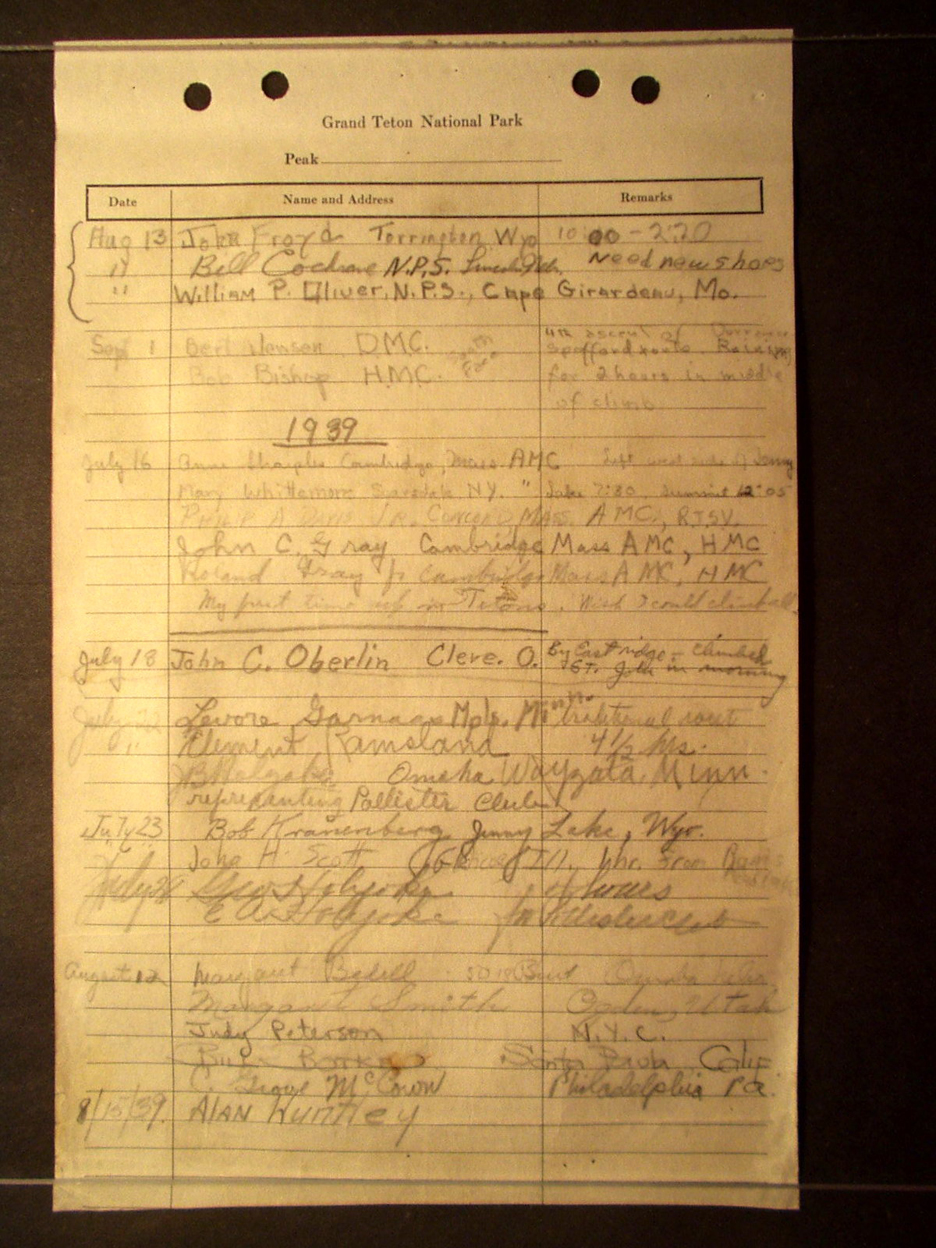 Grand Teton National Park
Peak
Date Name and Address Remarks
Aug 13 John Froyd Torrington Wyo 10:00 - 2:20
" Bill Cochrane N.P.S. Need new shoes
" William P. Oliver, N.P.S., Cape Girardeau, Mo.
Sept 1 Bert Jensen DMC. South Face 4th ascent of
Bob Bishop HMC. route. Raining
for 2 hours in middle
of climb
1939
July 16 Anne Sharples Cambridge, Mass. AMC Left west side of Jenny
Mary Whittemore Scarsdale N.Y. " Lake 7:30, Summit 12:05
Philip A Davis Jr. Concord Mass. AMC,
John C. Gray Cambridge Mass AMC, HMC
Roland Gray Jr Cambridge Mass AMC, HMC
My first time up in Tetons. Wish I could climb all.
July 18 John C. Oberlin Cleve. O. By East ridge - climbed
St. John in morning
July 22 Levore Mpls. Minn. traditional rout
" Clement Ramsland 4 1/2 hrs.
Omaha Wayzata Minn.
representing Pallister Club
July 23 Bob Kranenberg, Jenny Lake, Wyo.
" John H. Scott Ill. hr. from
July 26 Geo Holyoke hours
E A Holyoke for
August 12 Margaret Bedell Omaha Nebr
Margaret Smith Ogden, Utah
Judy Peterson N.Y.C.
Santa Paula Calif
C. Grove McCown Philadelphia Pa.
8/15/39. Alan